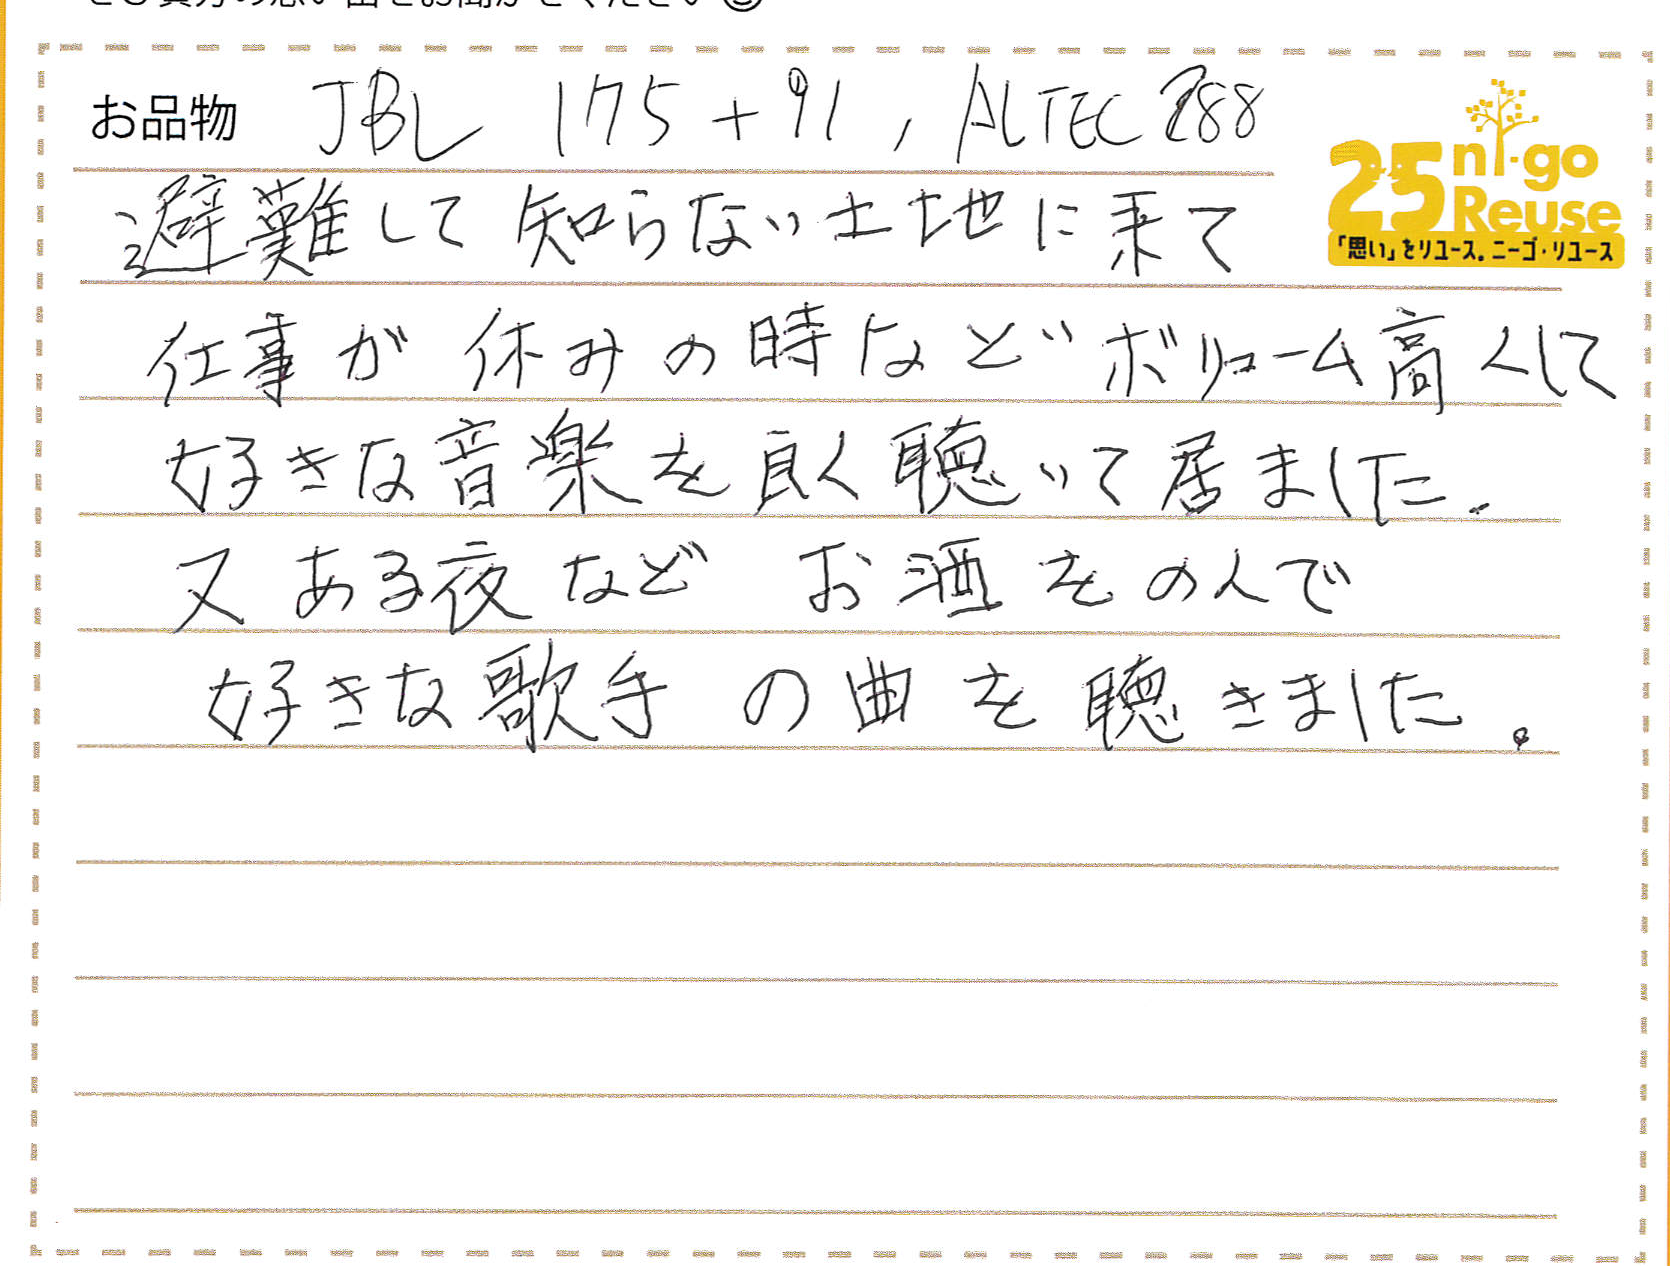 貴方の思い出をお聞かせください
お品物 JBL 175+91, ALTEC 288
25 ni-go Reuse
「思い」をリユース。ニーゴ・リユース
避難して知らない土地に来て
仕事が休みの時などボリューム高くして
好きな音楽を良く聴いて居ました.
又ある夜などお酒をのんで
好きな歌手の曲を聴きました。